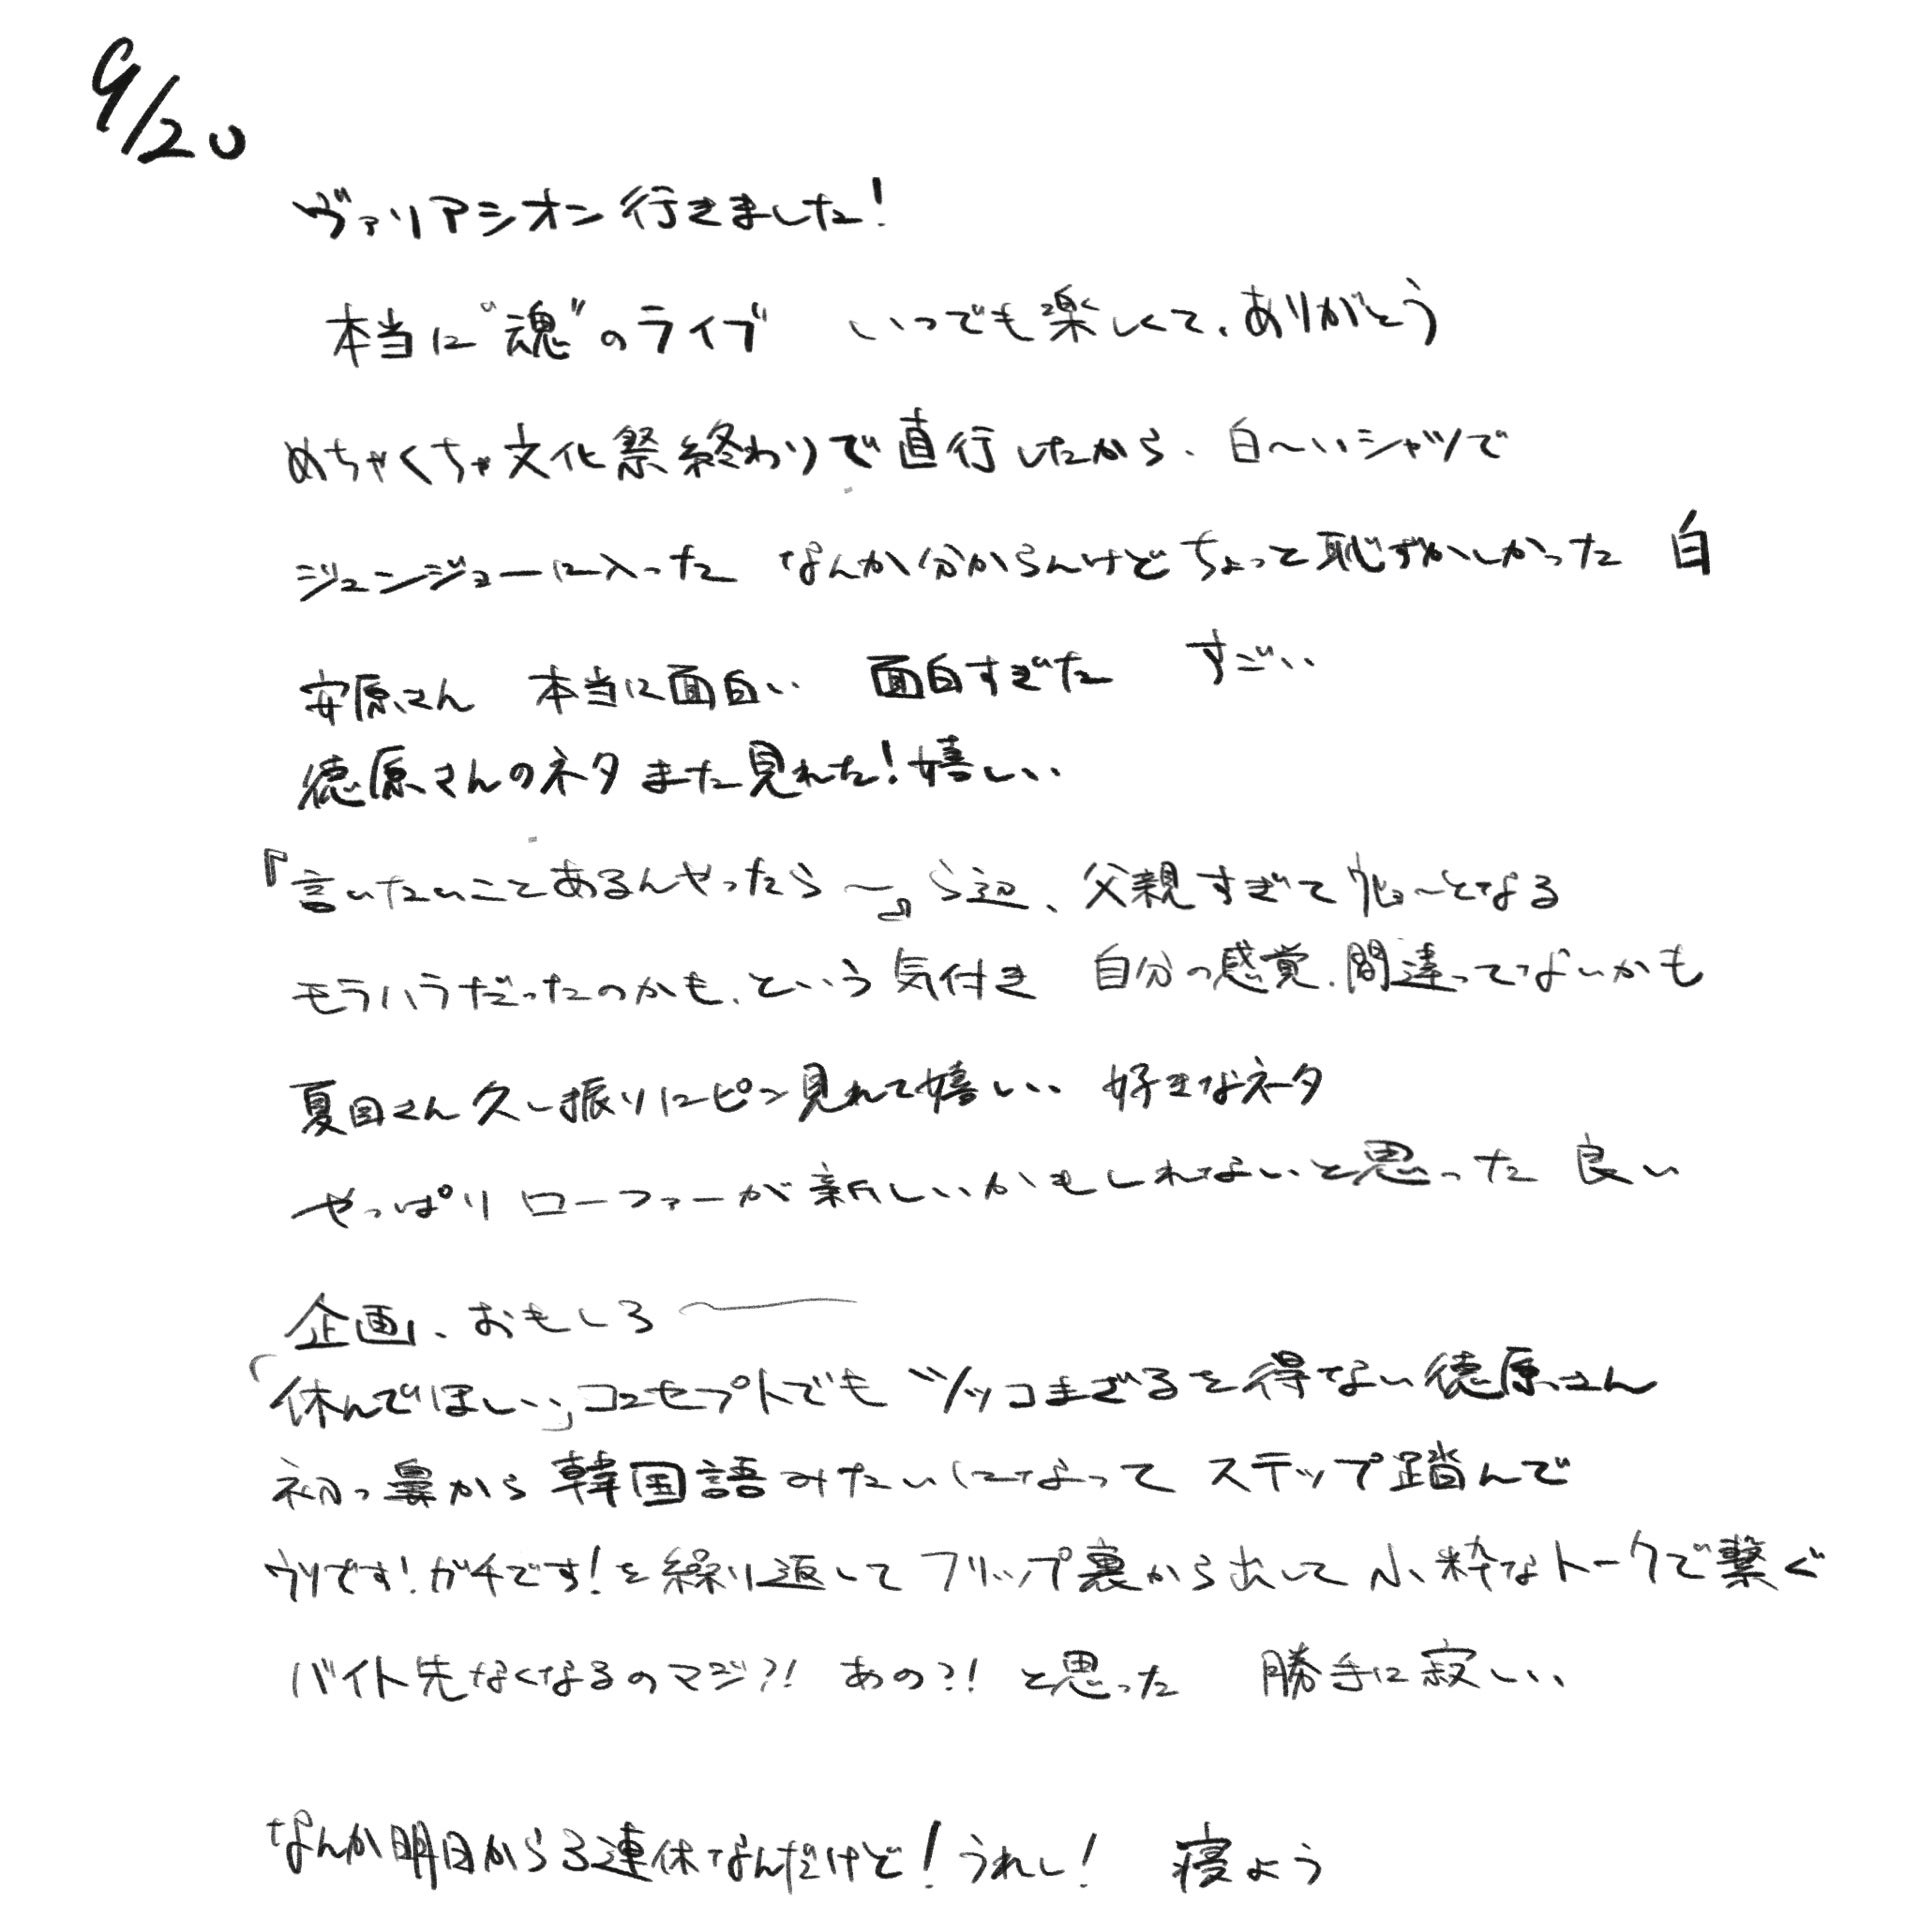 9/20
ヴァリアシオン行きました!
本当に"魂"のライブ いつでも楽しくて、ありがとう
めちゃくちゃ文化祭終わりで直行したから、白〜いシャツで
ジュンジョーに入った なんか分からんけどちょっと恥ずかしかった 白
安原さん 本当に面白い 面白すぎた すごい
徳原さんのネタまた見れた!嬉しい
『言いたいことあるんやったら〜』ら辺、父親すぎてウヒョ〜となる
モラハラだったのかも、という気付き 自分の感覚、間違ってないかも
夏目さん久し振りにピン見れて嬉しい 好きなネタ
やっぱりローファーが新しいかもしれないと思った 良い
企画、おもしろ〜
「休んでほしい」コンセプトでもツッコまざるを得ない徳原さん
初っ鼻から韓国語みたいになって ステップ踏んで
ウリです!ガチです!を繰り返してフリップ裏から出して小粋なトークで繋ぐ
バイト先なくなるのマジ?! あの?! と思った 勝手に寂しい
なんか明日から3連休なんだけど!うれし! 寝よう